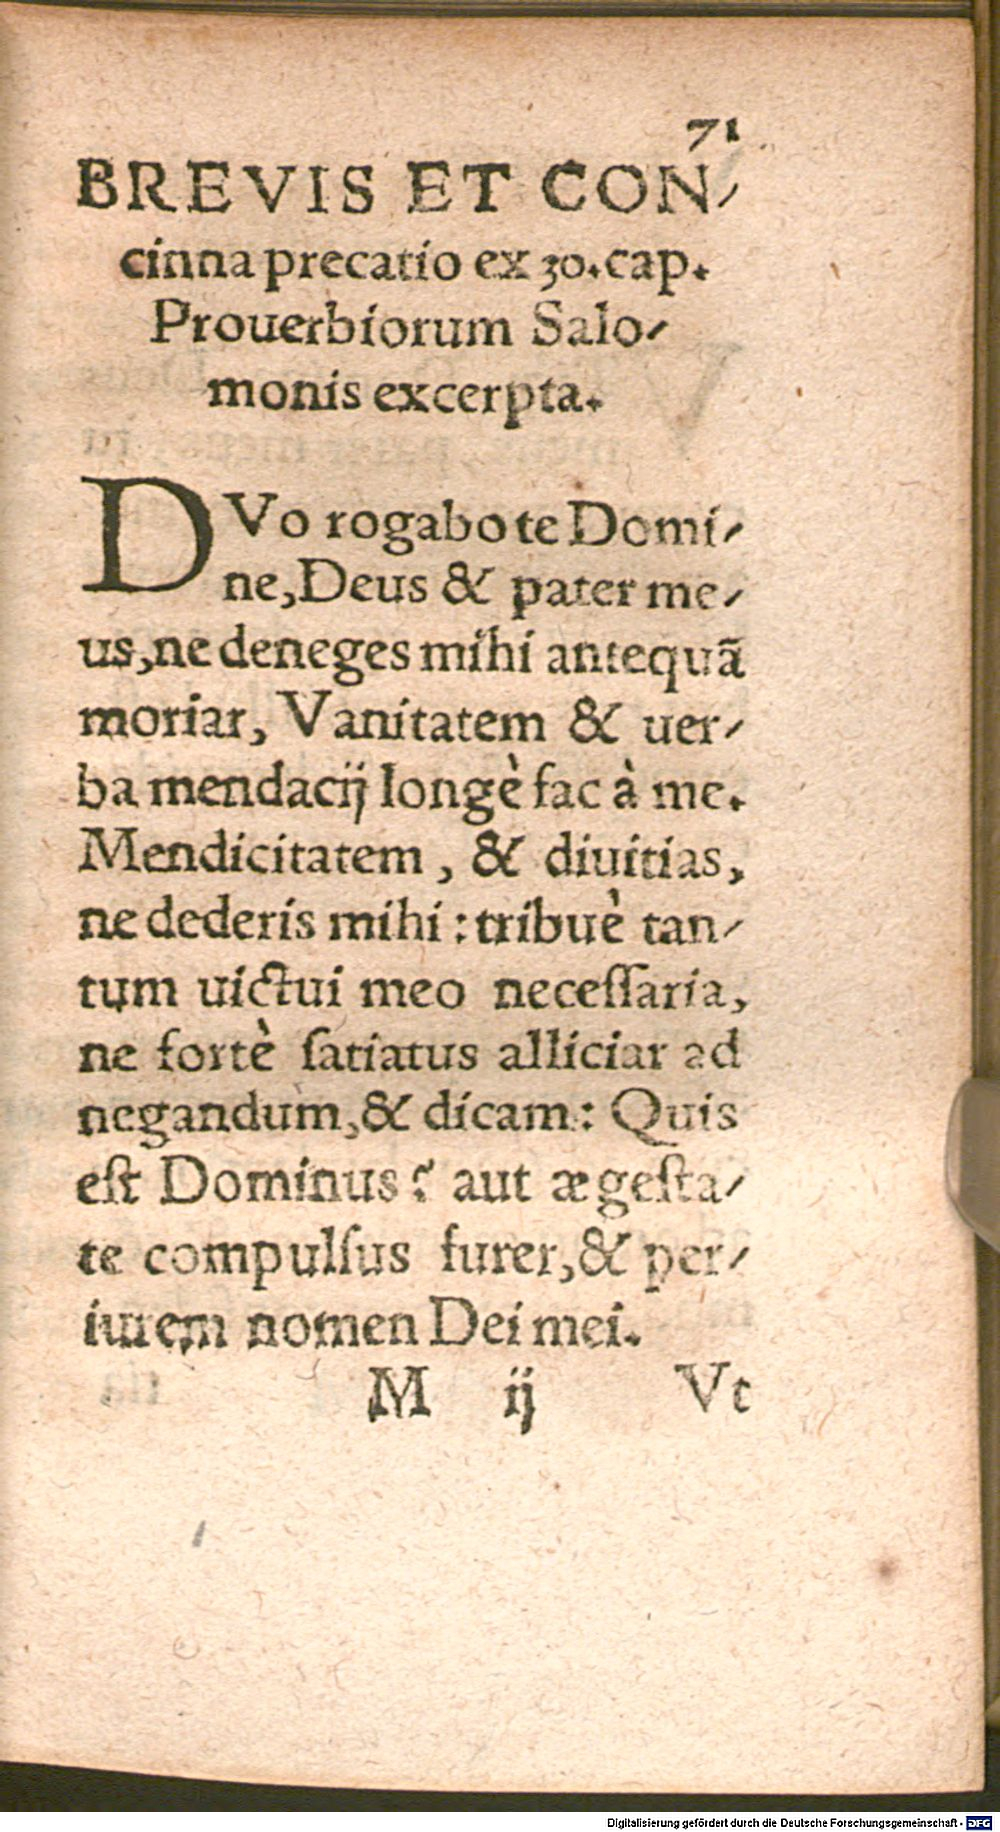 71
BREVIS ET CON⸗
cinna precatio ex 30. cap.
Prouerbiorum Salo⸗
monis excerpta.
DVo rogabo te Domi⸗
ne, Deus & pater me⸗
us, ne deneges mihi antequã
moriar, Vanitatem & uer⸗
ba mendacij longè fac à me.
Mendicitatem, & diuitias,
ne dederis mihi: tribuè tan⸗
tum uictui meo neceſſaria,
ne fortè ſatiatus alliciar ad
negandum, & dicam: Quis
eſt Dominus? aut ægeſta⸗
te compulſus furer, & per⸗
iurem nomen Dei mei.
M ij Vt
Digitalisierung gefördert durch die Deutsche Forschungsgemeinschaft - DFG